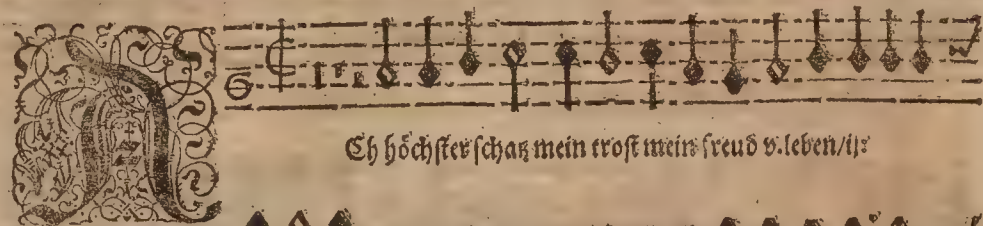 ACh höchster schatz mein trost mein freud v. leben/ij: